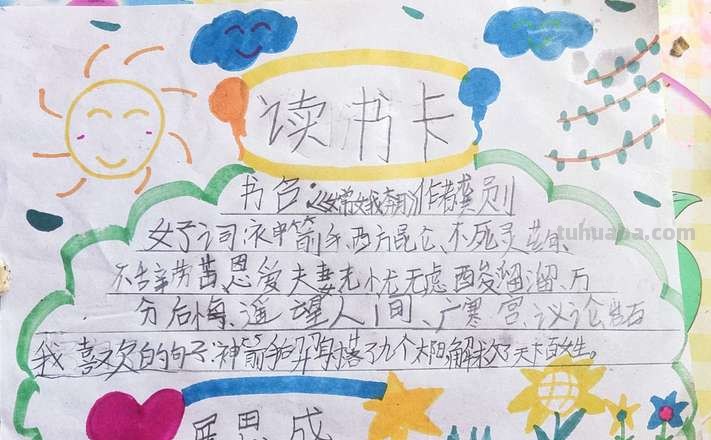 读书卡
书名:《嫦娥奔月》作者:莫贝
好词:神箭手、西方昆仑、不死灵药、
不告辛劳苦恩爱夫妻无忧无虑酸溜溜、万
分后悔、遥望人间、广寒宫、议论
我喜欢的句子:神箭手羿射落了九个太阳解救了天下百姓。
tuhuapa.com